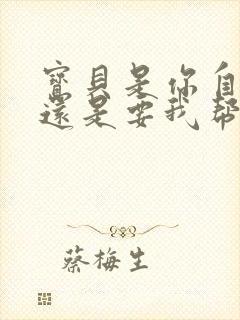 寶貝是你自
還是要我幫
蔡梅生